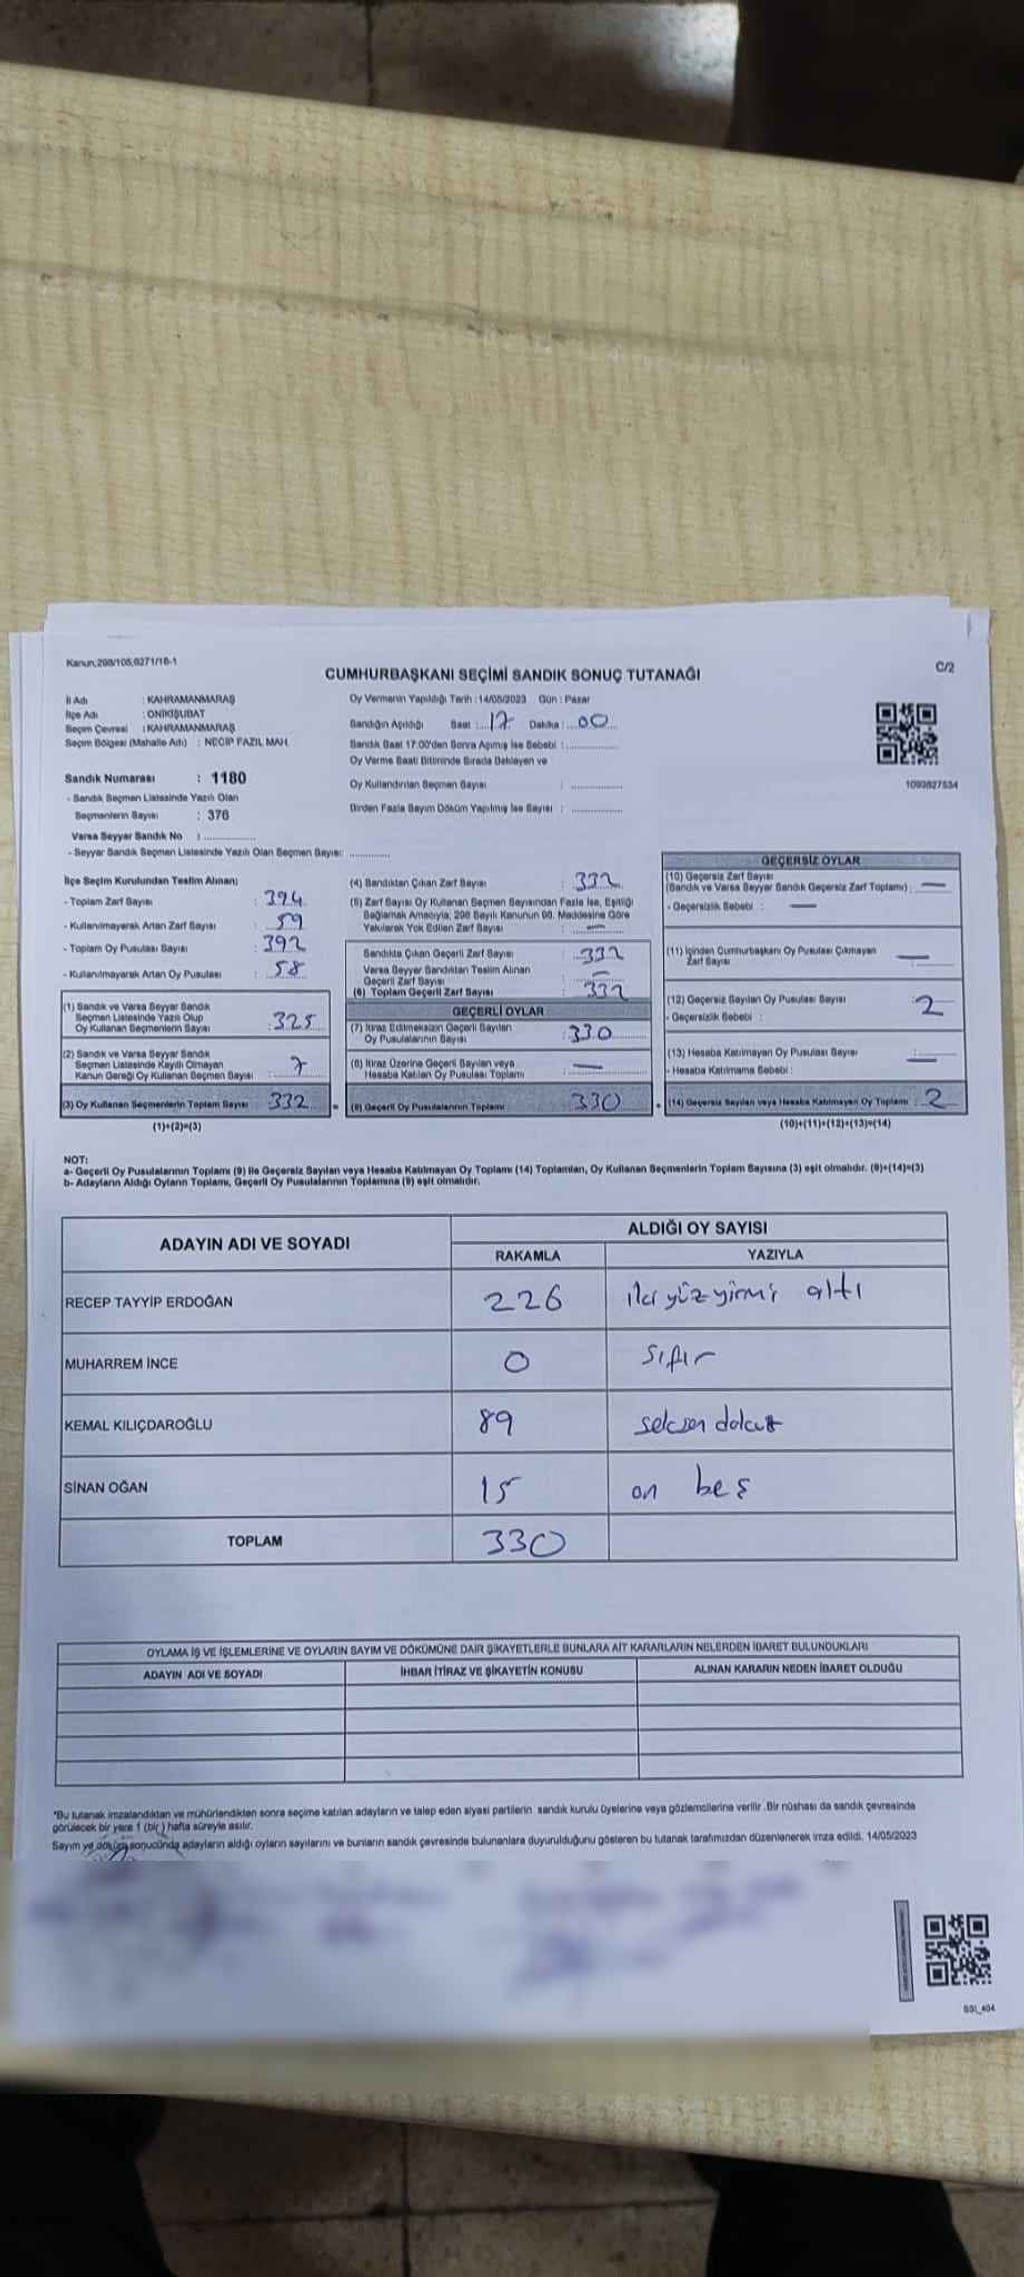 Kanun,298/105,6271/16-1
C/2
CUMHURBAŞKANI SEÇİMİ SANDIK SONUÇ TUTANAĞI
İl Adı : KAHRAMANMARAŞ
İlçe Adı : ONİKİŞUBAT
Seçim Çevresi : KAHRAMANMARAŞ
Seçim Bölgesi (Mahalle Adı) : NECİP FAZIL MAH.
Sandık Numarası : 1180
- Sandık Seçmen Listesinde Yazılı Olan
Seçmenlerin Sayısı : 376
Varsa Seyyar Sandık No : ..............
- Seyyar Sandık Seçmen Listesinde Yazılı Olan Seçmen Sayısı: ...........
Oy Vermenin Yapıldığı Tarih : 14/05/2023 Gün : Pazar
Sandığın Açıldığı Saat :..17.. Dakika :..00..
Sandık Saat 17:00'den Sonra Açılmış İse Sebebi : ..............
Oy Verme Saati Bitiminde Sırada Bekleyen ve
Oy Kullandırılan Seçmen Sayısı : ..............
Birden Fazla Sayım Döküm Yapılmış İse Sayısı : ..............
1093827534
İlçe Seçim Kurulundan Teslim Alınan;
- Toplam Zarf Sayısı : 394
- Kullanılmayarak Artan Zarf Sayısı : 59
- Toplam Oy Pusulası Sayısı : 392
- Kullanılmayarak Artan Oy Pusulası : 58
(1) Sandık ve Varsa Seyyar Sandık
Seçmen Listesinde Yazılı Olup
Oy Kullanan Seçmenlerin Sayısı : 325
(2) Sandık ve Varsa Seyyar Sandık
Seçmen Listesinde Kayıtlı Olmayan
Kanun Gereği Oy Kullanan Seçmen Sayısı : 7
(3) Oy Kullanan Seçmenlerin Toplam Sayısı : 332
(1)+(2)=(3)
(4) Sandıktan Çıkan Zarf Sayısı : 332
(5) Zarf Sayısı Oy Kullanan Seçmen Sayısından Fazla İse, Eşitliği
Sağlamak Amacıyla, 298 Sayılı Kanunun 98. Maddesine Göre
Yakılarak Yok Edilen Zarf Sayısı : —
Sandıkta Çıkan Geçerli Zarf Sayısı : 332
Varsa Seyyar Sandıktan Teslim Alınan
Geçerli Zarf Sayısı : —
(6) Toplam Geçerli Zarf Sayısı : 332
GEÇERLİ OYLAR
(7) İtiraz Edilmeksizin Geçerli Sayılan
Oy Pusulalarının Sayısı : 330
(8) İtiraz Üzerine Geçerli Sayılan veya
Hesaba Katılan Oy Pusulası Toplamı : —
(9) Geçerli Oy Pusulalarının Toplamı : 330
GEÇERSİZ OYLAR
(10) Geçersiz Zarf Sayısı
(Sandık ve Varsa Seyyar Sandık Geçersiz Zarf Toplamı) : —
- Geçersizlik Sebebi : —
(11) İçinden Cumhurbaşkanı Oy Pusulası Çıkmayan
Zarf Sayısı : —
(12) Geçersiz Sayılan Oy Pusulası Sayısı : 2
- Geçersizlik Sebebi :
(13) Hesaba Katılmayan Oy Pusulası Sayısı : —
- Hesaba Katılmama Sebebi :
(14) Geçersiz Sayılan veya Hesaba Katılmayan Oy Toplamı : 2
(10)+(11)+(12)+(13)=(14)
NOT:
a- Geçerli Oy Pusulalarının Toplamı (9) ile Geçersiz Sayılan veya Hesaba Katılmayan Oy Toplamı (14) Toplamları, Oy Kullanan Seçmenlerin Toplam Sayısına (3) eşit olmalıdır. (9)+(14)=(3)
b- Adayların Aldığı Oyların Toplamı, Geçerli Oy Pusulalarının Toplamına (9) eşit olmalıdır.
ADAYIN ADI VE SOYADI
ALDIĞI OY SAYISI
RAKAMLA YAZIYLA
RECEP TAYYİP ERDOĞAN 226 iki yüz yirmi altı
MUHARREM İNCE 0 sıfır
KEMAL KILIÇDAROĞLU 89 seksen dokuz
SİNAN OĞAN 15 on beş
TOPLAM 330
OYLAMA İŞ VE İŞLEMLERİNE VE OYLARIN SAYIM VE DÖKÜMÜNE DAİR ŞİKAYETLERLE BUNLARA AİT KARARLARIN NELERDEN İBARET BULUNDUKLARI
ADAYIN ADI VE SOYADI İHBAR İTİRAZ VE ŞİKAYETİN KONUSU ALINAN KARARIN NEDEN İBARET OLDUĞU
*Bu tutanak imzalandıktan ve mühürlendikten sonra seçime katılan adayların ve talep eden siyasi partilerin sandık kurulu üyelerine veya gözlemcilerine verilir. Bir nüshası da sandık çevresinde
görülecek bir yere 1 (bir) hafta süreyle asılır.
Sayım ve döküm sonucunda adayların aldığı oyların sayılarını ve bunların sandık çevresinde bulunanlara duyurulduğunu gösteren bu tutanak tarafımızdan düzenlenerek imza edildi. 14/05/2023